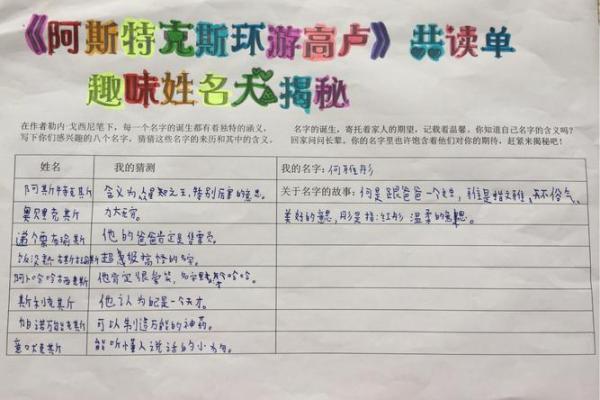 《阿斯特克斯环游高卢》共读单
趣味姓名大揭秘
在作者勒内·戈西尼笔下，每一个名字的诞生都有着独特的涵义，
写下你们感兴趣的八个名字，猜猜这些名字的来历和其中的含义。
名字的诞生，寄托着家人的期望，记载着温馨。你知道自己名字的含义吗？
回家问问长辈，你的名字里也许饱含着他们对你的期待，赶紧来揭秘吧！
姓名 我的猜测 我的名字：何雅彤
阿斯特克斯 含义为 之王，特别厉害的意思。 关于名字的故事：何是跟爸爸一个 ，雅是指文雅，不俗气
奥贝里克斯 力大无穷。 美好的意思，彤是指：红彤 温柔的意思。
他的爸爸肯定是售票员。
超级搞怪的
阿 哈哈 克斯 他肯定很爱笑， 哈哈。
斯 克斯 他认为自己是一个天才。
帕诺 克斯 可以制造万能的神药。
意 克斯 能听懂人说话的小狗。